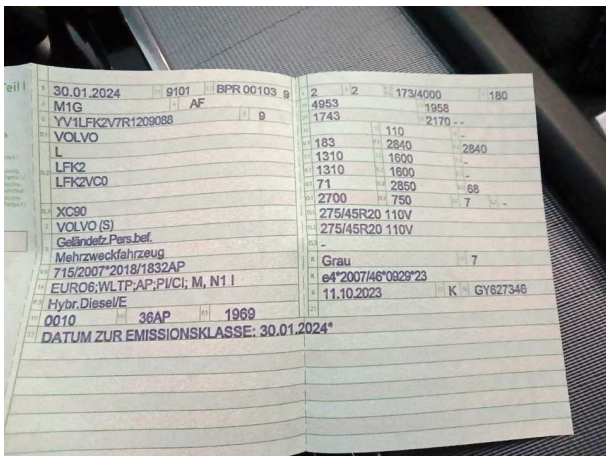 Teil I
30.01.2024 9101 BPR 00103 9
M1G AF
YV1LFK2V7R1209088 9
VOLVO
L
LFK2
LFK2VC0
XC90
VOLVO (S)
Geländetz.Pers.bef.
Mehrzweckfahrzeug
715/2007*2018/1832AP
EURO6;WLTP;AP;PI/CI; M, N1 I
Hybr.Diesel/E
0010 36AP 1969
DATUM ZUR EMISSIONSKLASSE: 30.01.2024*
2 2 173/4000 180
4953 1958
1743 2170 - -
110 -
183 2840 2840
1310 1600 -
1310 1600 -
71 2850 68
2700 750 7 -
275/45R20 110V
275/45R20 110V
-
Grau 7
e4*2007/46*0929*23
11.10.2023 K GY627346